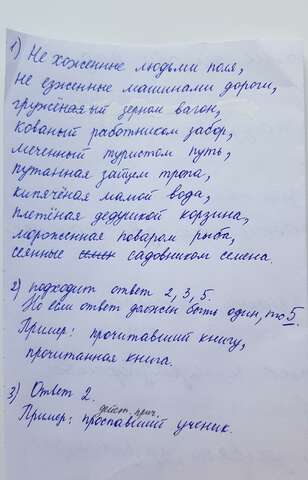 1) Не хоженные людьми поля,
не езженные машинами дороги,
гружёный зерном вагон,
кованый работником забор,
меченный туристом путь,
путанная зайцем тропа,
кипячёная мамой вода,
плетёная дедушкой корзина,
мороженная поваром рыба,
сеянные садовником семена.
2) подходит ответ 2, 3, 5.
Но если ответ должен быть один, то 5.
Пример: прочитавший книгу,
прочитанная книга.
3) Ответ 2.
дейст. прич.
Пример: проспавший ученик.